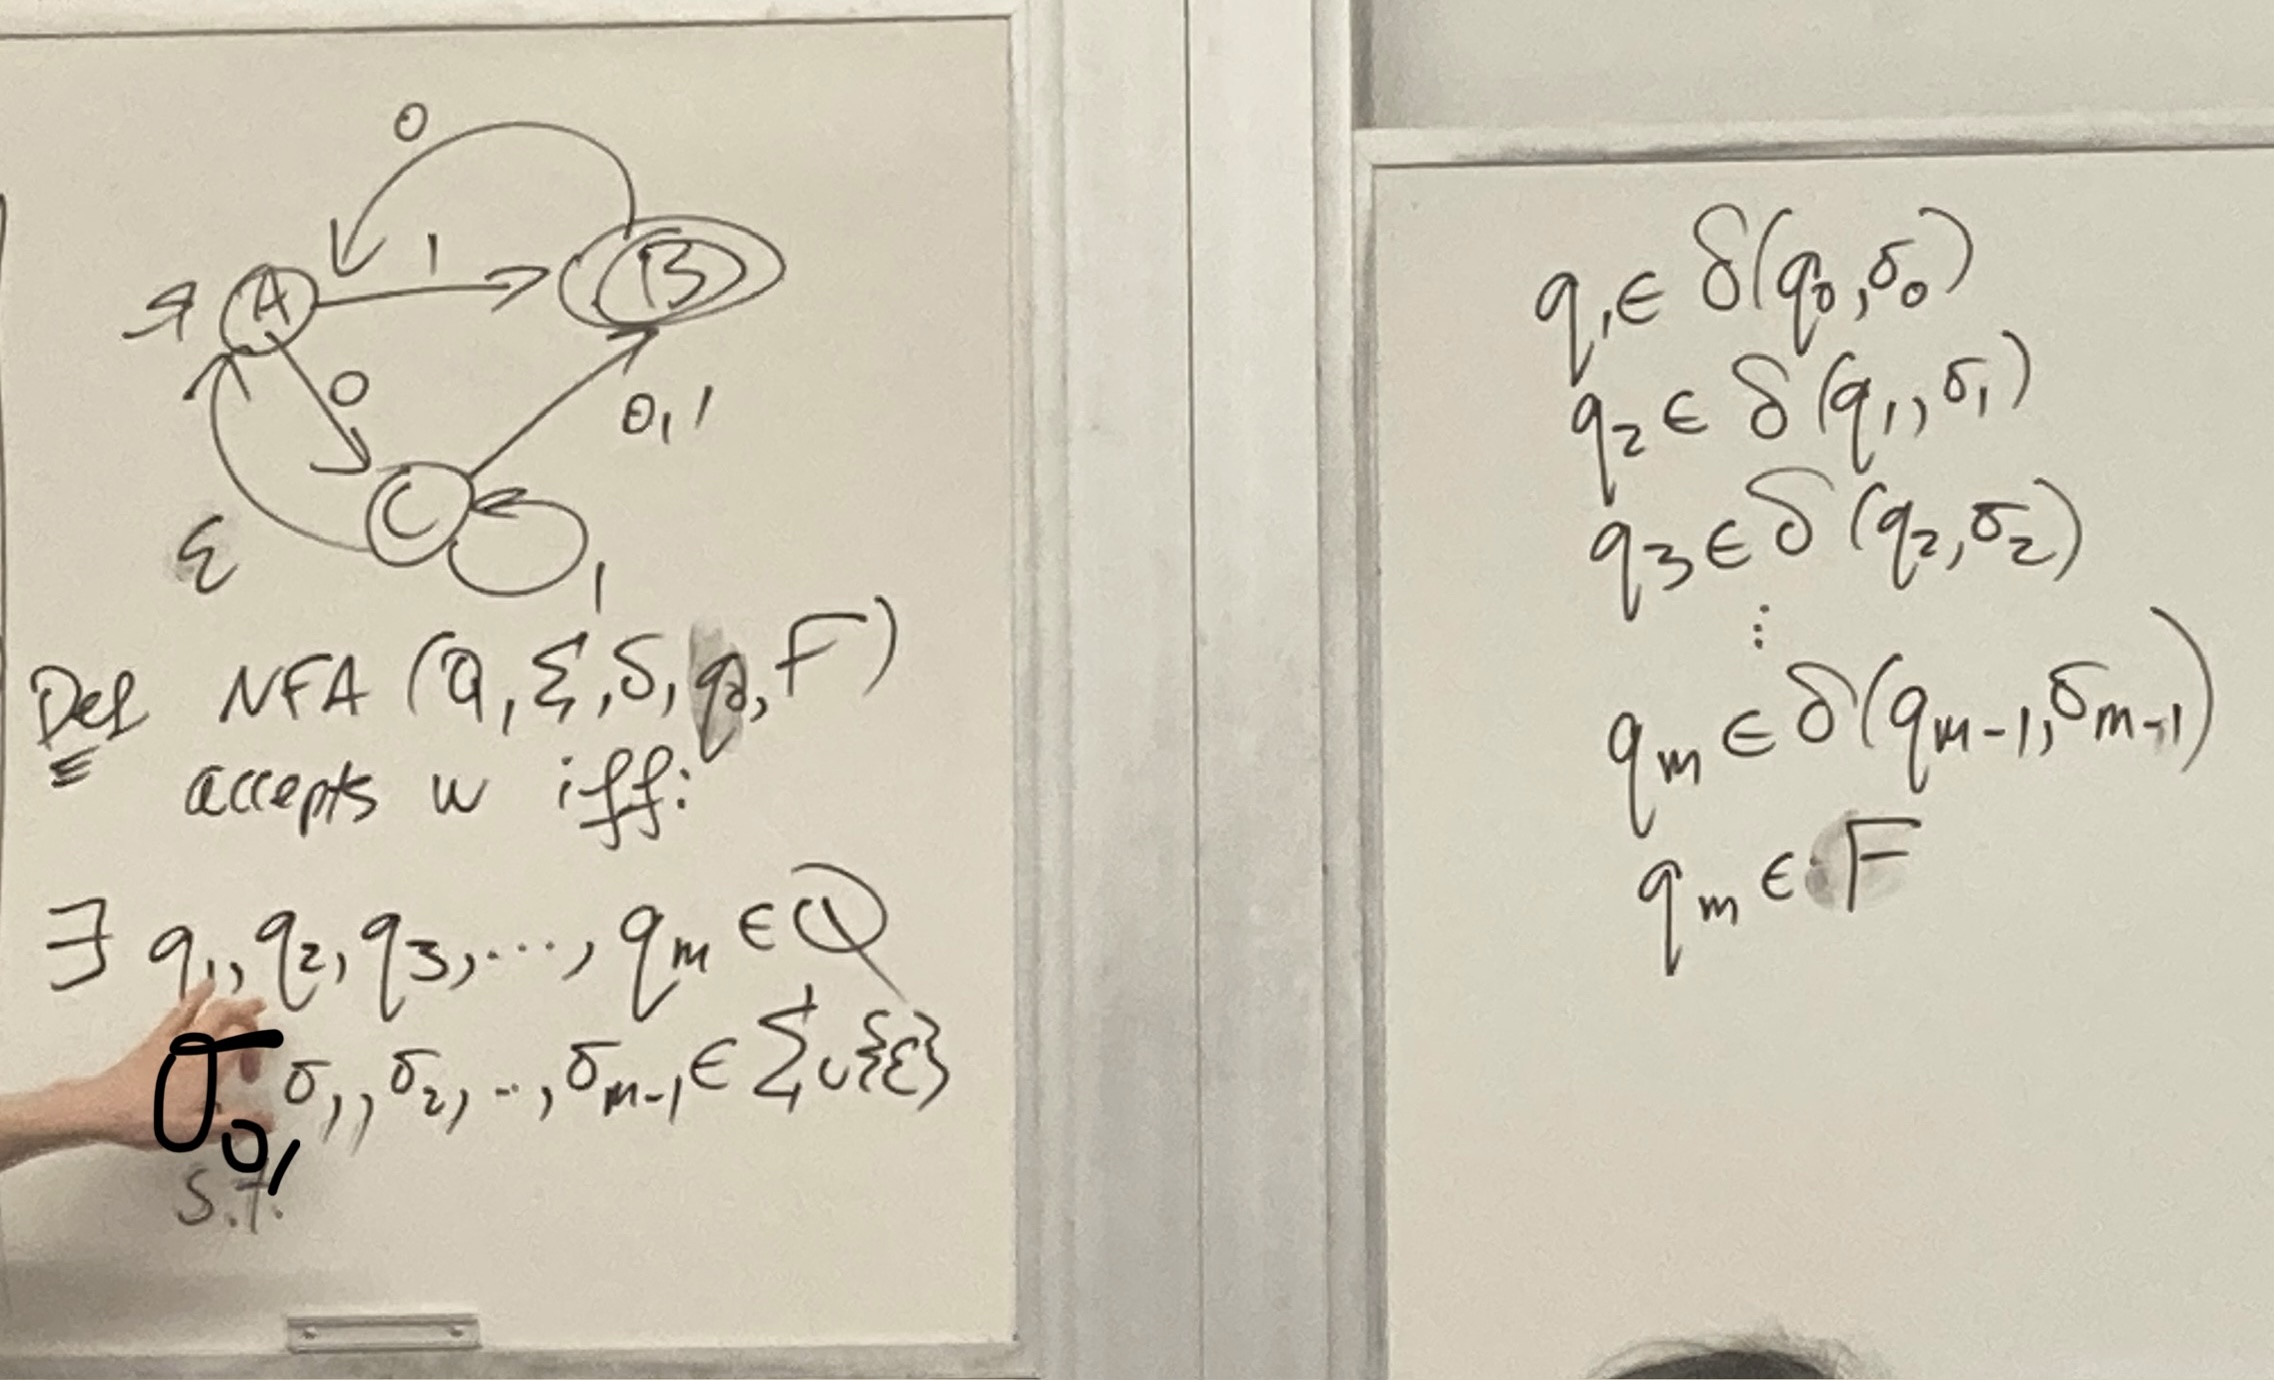 0
A
1
B
0
0,1
C
ε
1
Def NFA (Q, Σ, δ, q₀, F)
accepts w iff:
∃ q₁, q₂, q₃, ..., qₘ ∈ Q
σ₀, σ₁, σ₂, .., σₘ₋₁ ∈ Σ ∪ {ε}
s.t.
q₁ ∈ δ(q₀, σ₀)
q₂ ∈ δ(q₁, σ₁)
q₃ ∈ δ(q₂, σ₂)
⋮
qₘ ∈ δ(qₘ₋₁, σₘ₋₁)
qₘ ∈ F